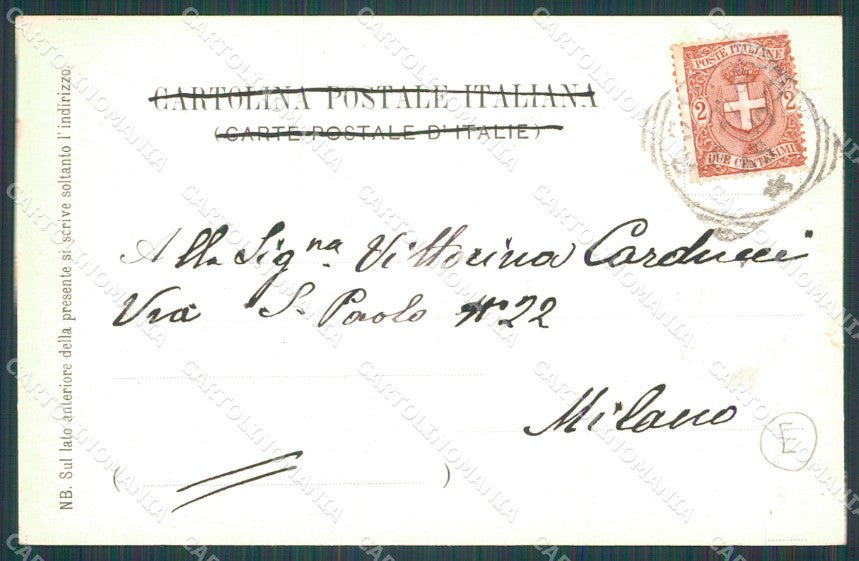 CARTOLINA POSTALE ITALIANA
(CARTE POSTALE D'ITALIE)
POSTE ITALIANE
2 2
DUE CENTESIMI
Alla Signa Vittorina Carducci
Via S. Paolo N° 22
Milano
( )
E
NB. Sul lato anteriore della presente si scrive soltanto l'indirizzo.
CARTOLINOMANIA